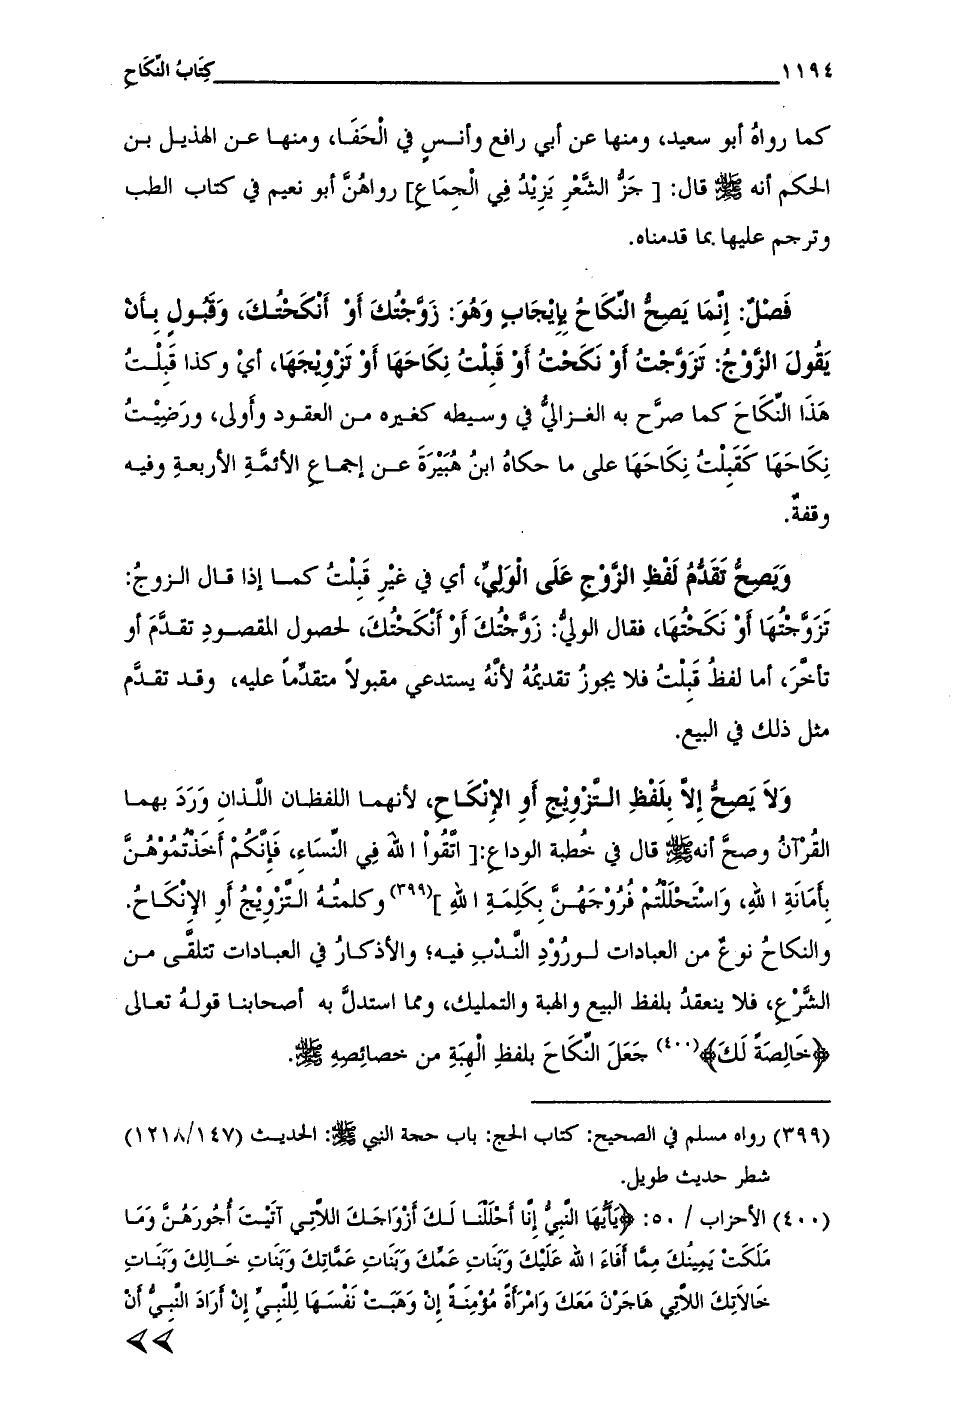 ١١٩٤ كِتَابُ النِّكَاحِ
كما رواهُ أبو سعيد، ومنها عن أبي رافع وأنسٍ في الْحَفَا، ومنها عن الهذيل بن
الحكم أنه ﷺ قال: [ جَزُّ الشَّعْرِ يَزِيْدُ فِي الْجِمَاعِ] رواهُنَّ أبو نعيم في كتاب الطب
وترجم عليها بما قدمناه.
فَصْلٌ: إِنَّمَا يَصِحُّ النِّكَاحُ بِإِيْجَابٍ وَهُوَ: زَوَّجْتُكَ أَوْ أَنْكَحْتُكَ، وَقَبُولٍ بِأَنْ
يَقُولَ الزَّوْجُ: تَزَوَّجْتُ أَوْ نَكَحْتُ أَوْ قَبِلْتُ نِكَاحَهَا أَوْ تَزْوِيْجَهَا، أيْ وكذا قَبِلْتُ
هَذَا النِّكَاحَ كما صرَّح به الغزاليُّ في وسيطه كغيره من العقود وأَولى، ورَضِيْتُ
نِكَاحَهَا كَقَبِلْتُ نِكَاحَهَا على ما حكاهُ ابنُ هُبَيْرَةَ عن إجماعِ الأئمَّةِ الأربعةِ وفيه
وقفةٌ.
وَيَصِحُّ تَقَدُّمُ لَفْظِ الزَّوْجِ عَلَى الْوَلِيِّ، أي في غيْرِ قَبِلْتُ كما إذا قال الزوجُ:
تَزَوَّجْتُهَا أَوْ نَكَحْتُهَا، فقال الوليُّ: زَوَّجْتُكَ أَوْ أَنْكَحْتُكَ، لحصول المقصودِ تقدَّمَ أو
تأخَّرَ، أما لفظُ قَبِلْتُ فلا يجوزُ تقديمُهُ لأنَّهُ يستدعي مقبولاً متقدِّماً عليه، وقد تقدَّم
مثل ذلك في البيع.
وَلاَ يَصِحُّ إِلاَّ بِلَفْظِ التَّزْوِيْجِ أَوِ الإِنْكَاحِ، لأنهما اللفظان اللَّذانِ وَرَدَ بهما
القُرْآنُ وصحَّ أنه ﷺ قال في خُطبة الوداعِ:[ اتَّقُواْ اللهَ فِي النِّسَاءِ، فَإِنَّكُمْ أَخَذْتُمُوْهُنَّ
بِأَمَانَةِ اللهِ، وَاسْتَحْلَلْتُمْ فُرُوْجَهُنَّ بِكَلِمَةِ اللهِ ](٣٩٩) وكلمتهُ التَّزْوِيْجُ أَوِ الإِنْكَاحُ.
والنكاحُ نوعٌ من العبادات لورُوْدِ النَّدْبِ فيه؛ والأذكارُ في العبادات تتلقَّى من
الشَّرْعِ، فلا ينعقدُ بلفظ البيع والهبة والتمليك، ومما استدلَّ به أصحابنا قولهُ تعالى
﴿خَالِصَةً لَكَ﴾(٤٠٠) جَعَلَ النِّكَاحَ بلفظِ الْهِبَةِ من خصائِصِهِ ﷺ.
(٣٩٩) رواه مسلم في الصحيح: كتاب الحج: باب حجة النبي ﷺ: الحديث (١٢١٨/١٤٧)
شطر حديث طويل.
(٤٠٠) الأحزاب / ٥٠: ﴿يَأَيُّهَا النَّبِيُّ إِنَّا أَحْلَلْنَا لَكَ أَزْوَاجَكَ اللاَّتِي آتَيْتَ أُجُورَهُنَّ وَمَا
مَلَكَتْ يَمِينُكَ مِمَّا أَفَاءَ اللهُ عَلَيْكَ وَبَنَاتِ عَمِّكَ وَبَنَاتِ عَمَّاتِكَ وَبَنَاتِ خَالِكَ وَبَنَاتِ
خَالاَتِكَ اللاَّتِي هَاجَرْنَ مَعَكَ وَامْرَأَةً مُؤْمِنَةً إِنْ وَهَبَتْ نَفْسَهَا لِلنَّبِيِّ إِنْ أَرَادَ النَّبِيُّ أَنْ